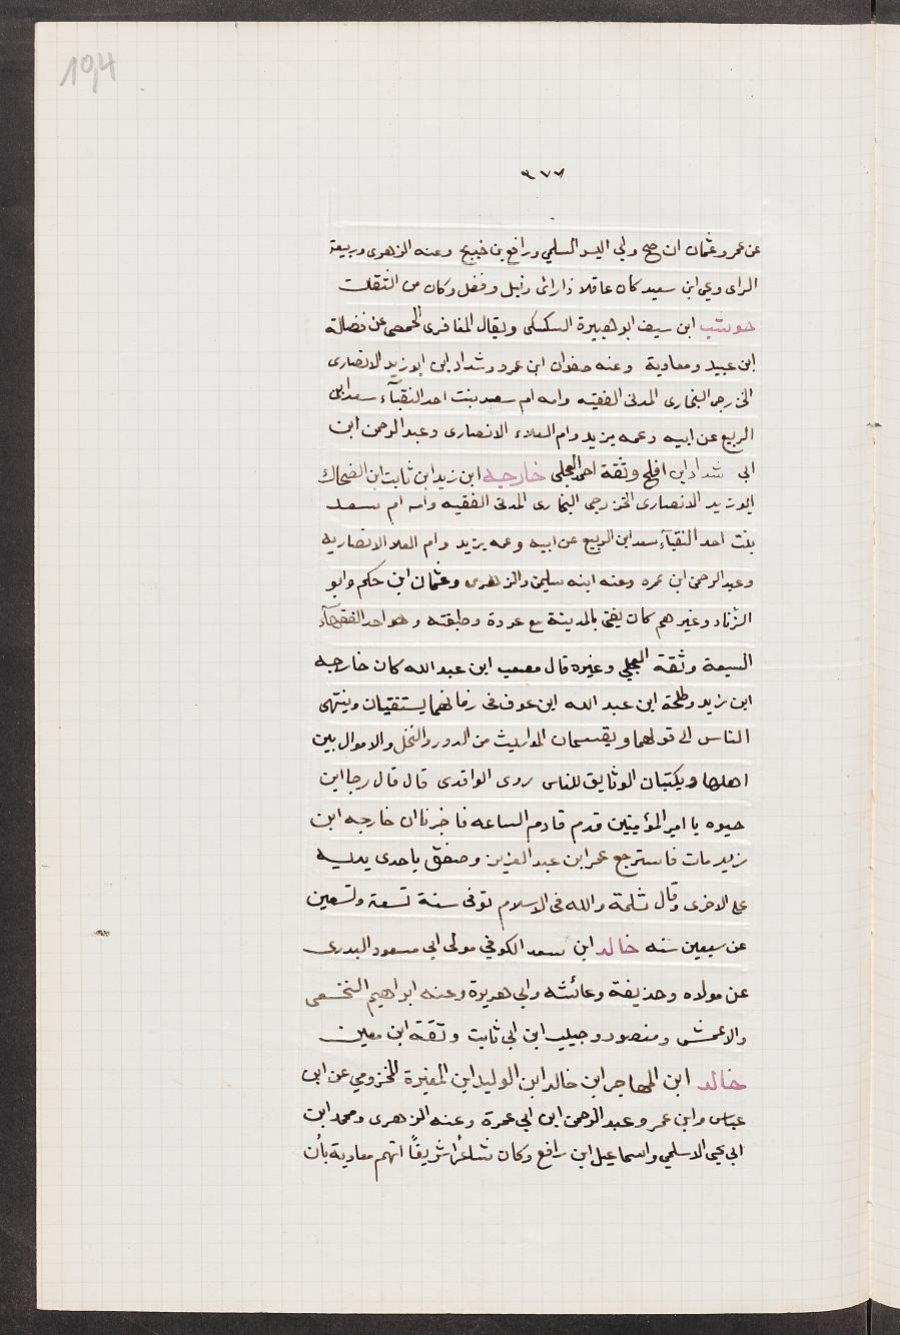 194
٩٧٧
عن عمر وعثمان ان صح وابي اليسر السلمي ورافع بن خديج وعنه الزهرى وربيعة
الراى ويحي ابن سعيد كان عاقلا ذا رائ ونبل وفضل وكان من الثقات
حوشب ابن سيف ابو هبيرة السكسكى ويقال المغا فرى الحمصي عن فضالة
ابن عبيد ومعاوية وعنه صفوان ابن عمرو وشداد ابن ابو زيد الانصارى
الخزرجى النجارى المدنى الفقيه وامه ام سعيد بنت احد النقبآء سعد ابن
الربيع عن ابيه وعمه يزيد وام العلاء الانصارى وعبد الرحمن ابن
ابي شداد ابن افلح وثقة احمد العجلى خارجه ابن زيد ابن ثابت ابن الضحاك
ابو زيد الانصارى الخزرجى النجارى المدنى الفقيه وامه ام سعد
بنت احد النقبآء سعد ابن الربيع عن ابيه وعمه يزيد وام العلا الانصاريه
وعبد الرحمن ابن عمره وعنه ابنه سليمن والزهرى وعثمان ابن حكم وابو
الزناد وغيرهم كان يفتى بالمدينة مع عروة وطبقته وهو احد الفقهآء
السبعة وثقة العجلي وغيره قال مصعب ابن عبد الله كان خارجه
ابن زيد وطلحة ابن عبد الله ابن عوف في زمانهما يستفتيان وينتهى
الناس الى قولهما ويقسمان المواريث من الدور والنخل والاموال بين
اهلها ويكتبان الوثايق للناس روى الواقدى قال قال رجا ابن
حيوه يا امير المؤمنين قدم قادم الساعه فاخبرنا ان خارجه ابن
زيد مات فاسترجع عمر ابن عبد العزيز وصفق باحدى يديه
على الاخرى وقال ثلمة والله فى الاسلام توفى سنة تسعة وتسعين
عن سبعين سنه خالد ابن سعد الكوفي مولى ابي مسعود البدرى
عن مولاه وحذيفة وعائشه وابي هريرة وعنه ابراهيم النخعى
والاعمش ومنصور وحبيب ابن ابي ثابت وثقة ابن معين
خالد ابن المهاجر ابن خالد ابن الوليد ابن المغيرة المخزومي عن ابن
عباس وابن عمر وعبد الرحمن ابن ابي عمرة وعنه الزهرى ومحمد ابن
ابي يحى الاسلمي واسماعيل ابن رافع وكان شاعرًا شريفًا اتهم معاوية بأن